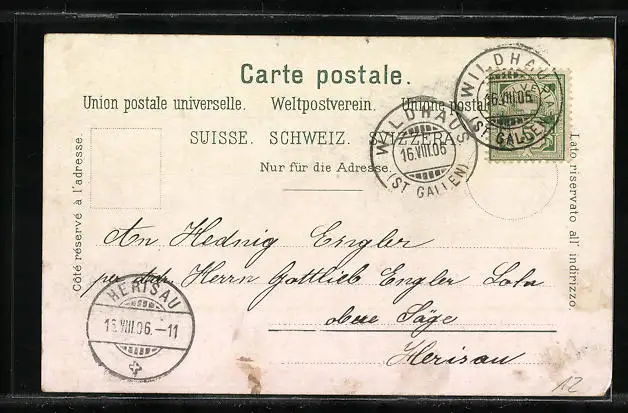 Carte postale.
Union postale universelle. Weltpostverein. Unione postale
SUISSE. SCHWEIZ. SVIZZERA.
Nur für die Adresse.
Côté réservé à l'adresse.
Lato riservato all' indirizzo.
WILDHAUS
16.VIII.06
(ST. GALLEN)
WILDHAUS
16.VIII.06
(ST. GALLEN)
An Hedwig Engler
per Adr. Herrn Gottlieb Engler
obere Säge
Herisau
HERISAU
16.VIII.06.-11
12